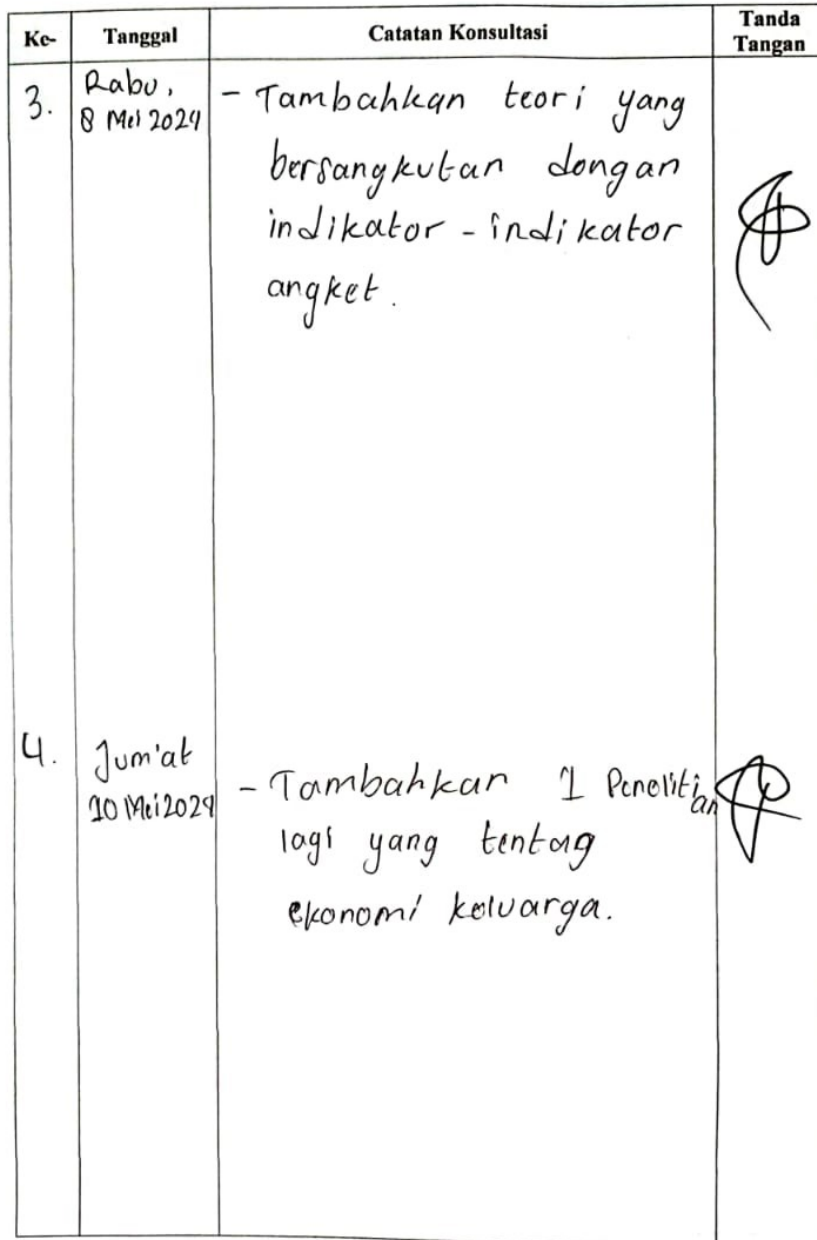 Ke- Tanggal Catatan Konsultasi Tanda Tangan
3. Rabu, 8 Mei 2024
- Tambahkan teori yang
bersangkutan dengan
indikator - indikator
angket.
4. Jum'at 10 Mei 2024
- Tambahkan 1 Penelitian
lagi yang tentag
ekonomi keluarga.